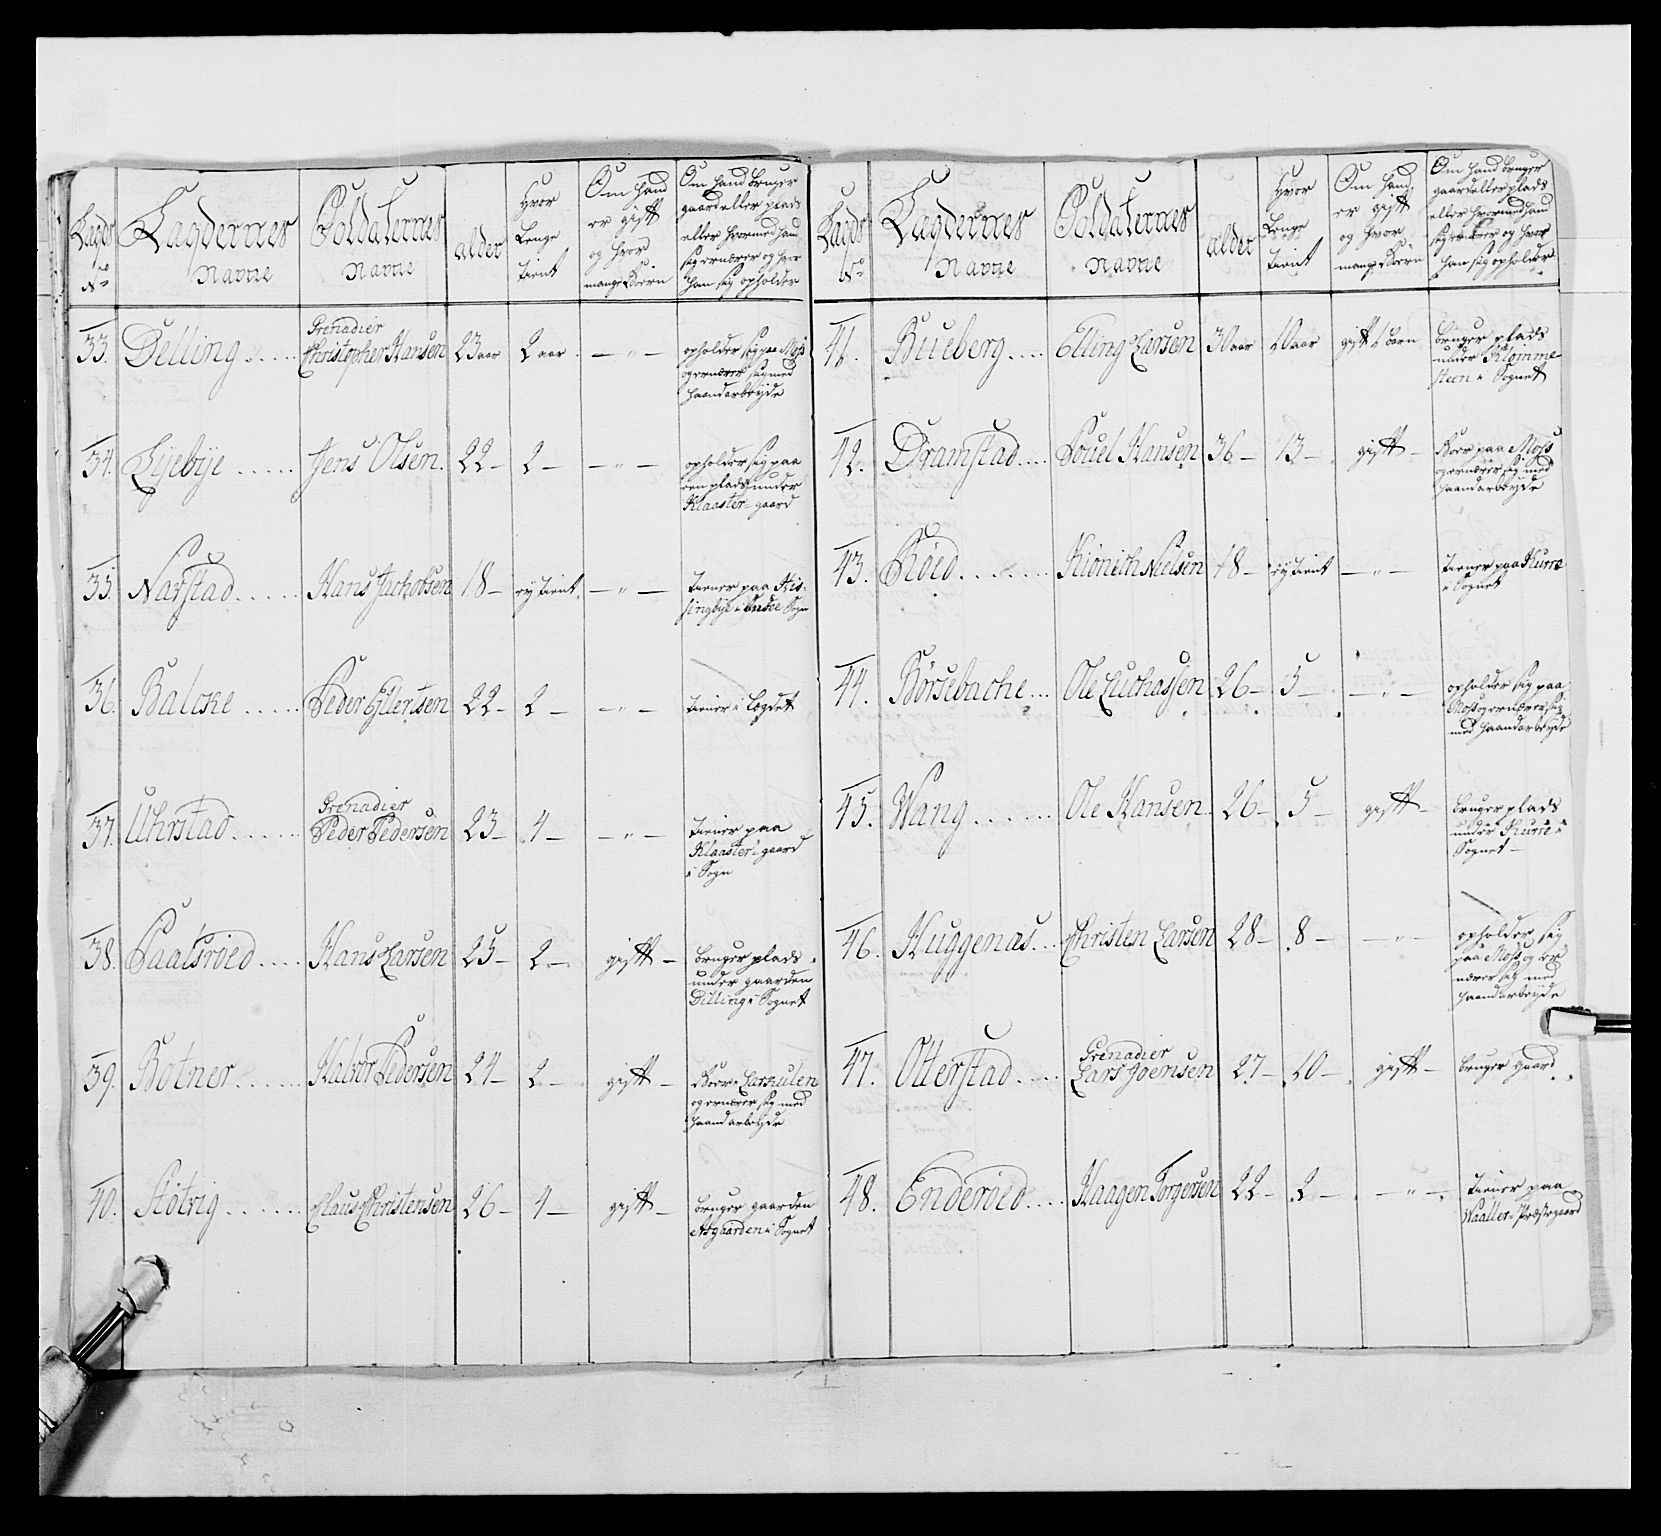 Lægds No
Lægdernes Navne
Soldaternes Navne
alder
Hvor Lenge tient
Om hand er gift og hvor mange Børn
Om hand bruger gaard eller plads eller hvormed hand sig ernærer og hvor han sig opholder
33. Delling..... Grenadier Christopher Hansen 23 aar 2 aar. — " —
opholder sig paa Moss
og ernærer sig med
haandarbeyde
34. Lyebye ..... Jens Olsen. 22 — 2 — — " —
opholder sig paa
een plads under
Klaaster-gaard
35. Narstad..... Hans Jachobsen 18 — ey tient. — " —
tiener paa Kis-
singbye i Sogn
36. Balche ..... Peder Ellertsen 22 — 2 — — " —
tiener i Lægdet
37. Uhrstad...... Grenadier Peder Pedersen 23 — 4 — — " —
tiener paa
Klaaster-gaard
i Sogn
38. Paalsröed..... Hans Larsen 25 — 2 — gift —
bruger plads
under gaarden
Dilling i Sognet
39. Botner...... Halvor Pedersen 24 — 2 — gift —
Boer i Larkulen
og ernærer sig med
haandarbeyde
40. Stötvig ...... Claus Christensen 26 — 4 — gift —
bruger gaarden
i Sognet
Lægds No
Lægdernes Navne
Soldaternes Navne
alder
Hvor Lenge tient
Om hand er gift og hvor mange Børn
Om hand bruger gaard eller plads eller hvormed hand sig ernærer og hvor han sig opholder
41. Bueberg.... Elling Larsen 30 aar 10 aar gift 1 barn
bruger plads
under Klomme-
steen i Sognet
42. Dramstad.... Pouel Hansen 36 — 13 — gift —
Boer paa Moss
og ernærer sig med
haandarbeyde
43. Röed....... Nielsen 18 — ey tient — " —
tiener paa Kurre
i Sognet
44. Börsebache... Ole Luchassen 26 — 5 — — " —
opholder sig paa
Moss og ernærer sig
med haandarbeyde
45. Wang....... Ole Hansen 26 — 5 — gift —
bruger plads
under Kurre i
Sognet —
46. Huggenæs... Christen Larsen 28 — 8 — — " —
opholder sig
paa Moss og er
nærer sig med
haandarbeyde
47. Otterstad..... Grenadier Lars Joensen 27 — 10 — gift —
bruger gaard
48. Enderöed.... Haagen Torgersen 22 — 2 — — " —
tiener paa
Waaller-Præstegaard